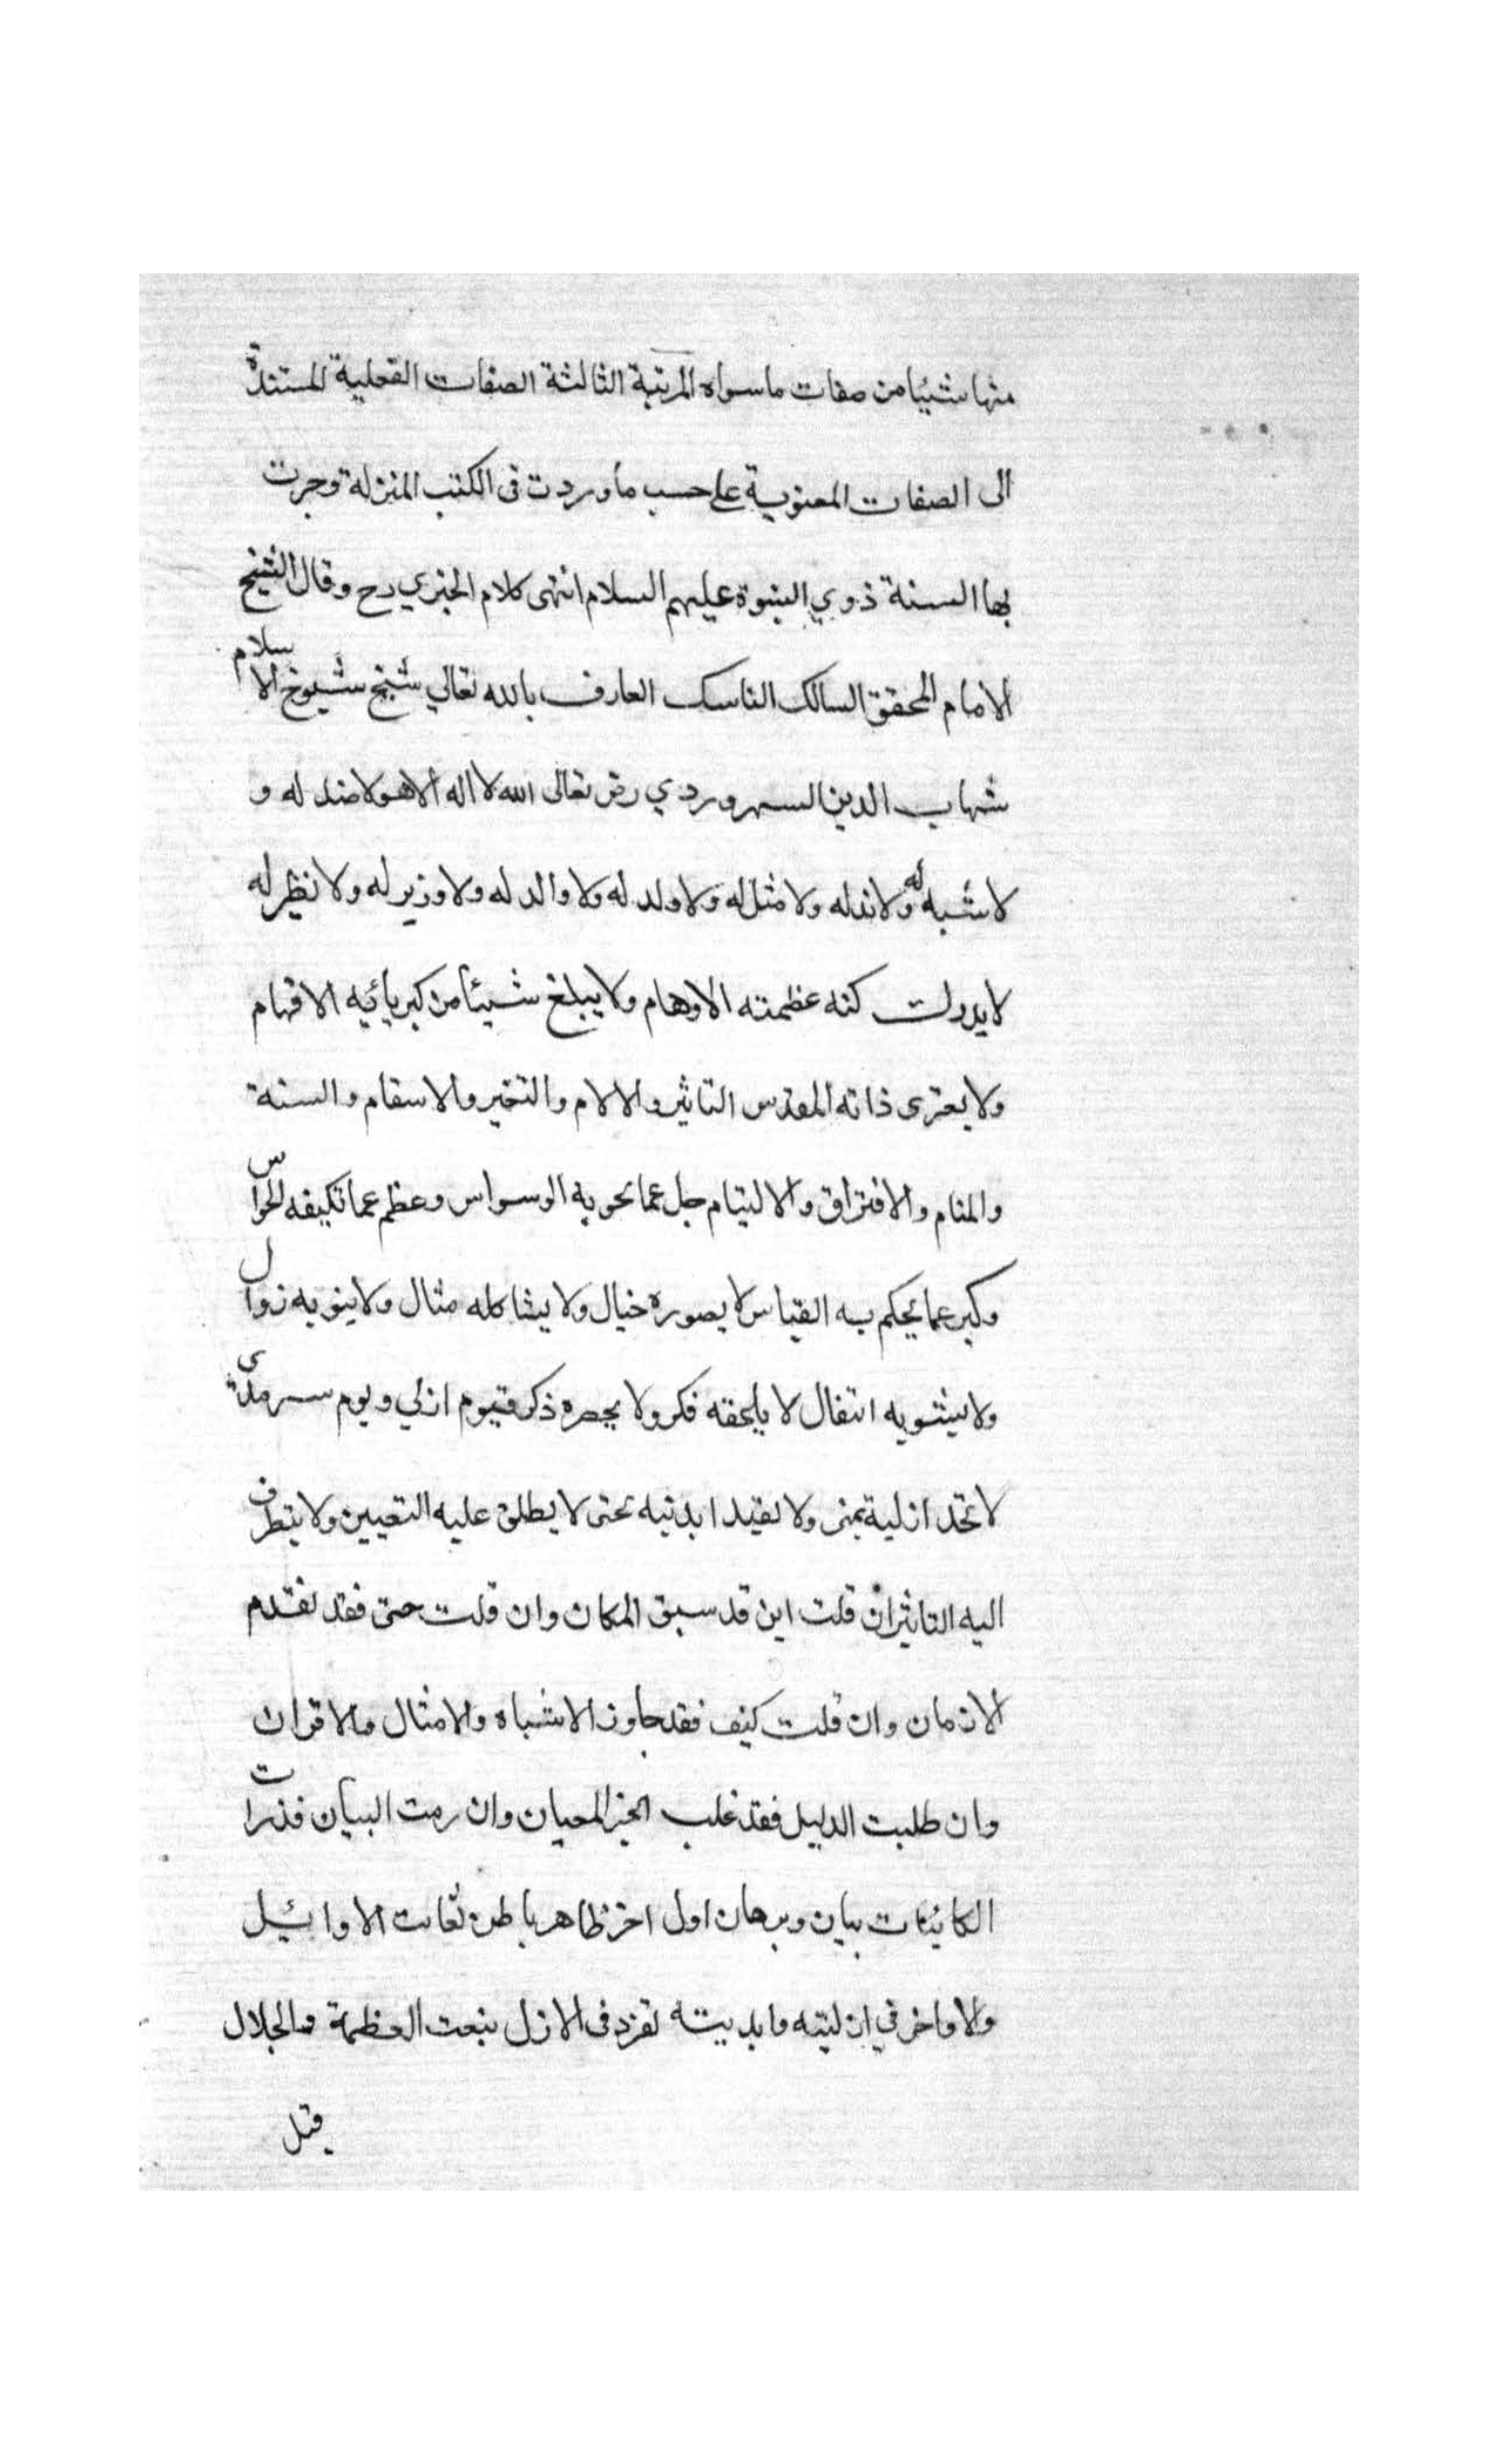 منها شيئا من صفات ما سواه المرتبة الثالثة الصفات الفعلية المستندة
الى الصفات المعنوية على حسب ما وردت فى الكتب المنزلة وجرت
بها السنة ذوي النبوة عليهم السلام انتهى كلام الجنزي رح وقال الشيخ
الامام المحقق السالك الناسك العارف بالله تعالي شيخ شيوخ الاسلام
شهاب الدين السهروردي رض تعالى الله لا اله الا هو لا ضد له و
لا شبه له ولا ند له ولا مثل له ولا ولد له ولا والد له ولا وزير له ولا نظير له
لا يدرك كنه عظمته الاوهام ولا يبلغ شيئا من كبريائيه الافهام
ولا يعترى ذاته المقدس التاثير والالام والتغير والاسقام والسنة
والمنام والافتراق والاليتام جل عما يحويه الوسواس وعظم عما تكيفه الحواس
وكبر عما يحكم به القياس لا يصوره خيال ولا يشاكله مثال ولا ينوبه زوال
ولا يشوبه انتقال لا يلحقه فكر ولا يحصره ذكر قيوم ازلي ويوم سرمدى
لا تحد ازلية بمتى ولا تقيد ابديته بحتى لا يطلق عليه التعيين ولا يتطرف
اليه التاثير ان قلت اين قد سبق المكان وان قلت حتى فقد تقدم
الازمان وان قلت كيف فقد جاوز الاشباه والامثال والاقران
وان طلبت الدليل فقد غلب الخبر العيان وان رمت البيان فذرات
الكائنات بيان وبرهان اول اخر ظاهر باطن الاوائيل
والاواخر في ازليته وابديته تفرد فى الازل بنعت العظمة والجلال
قبل